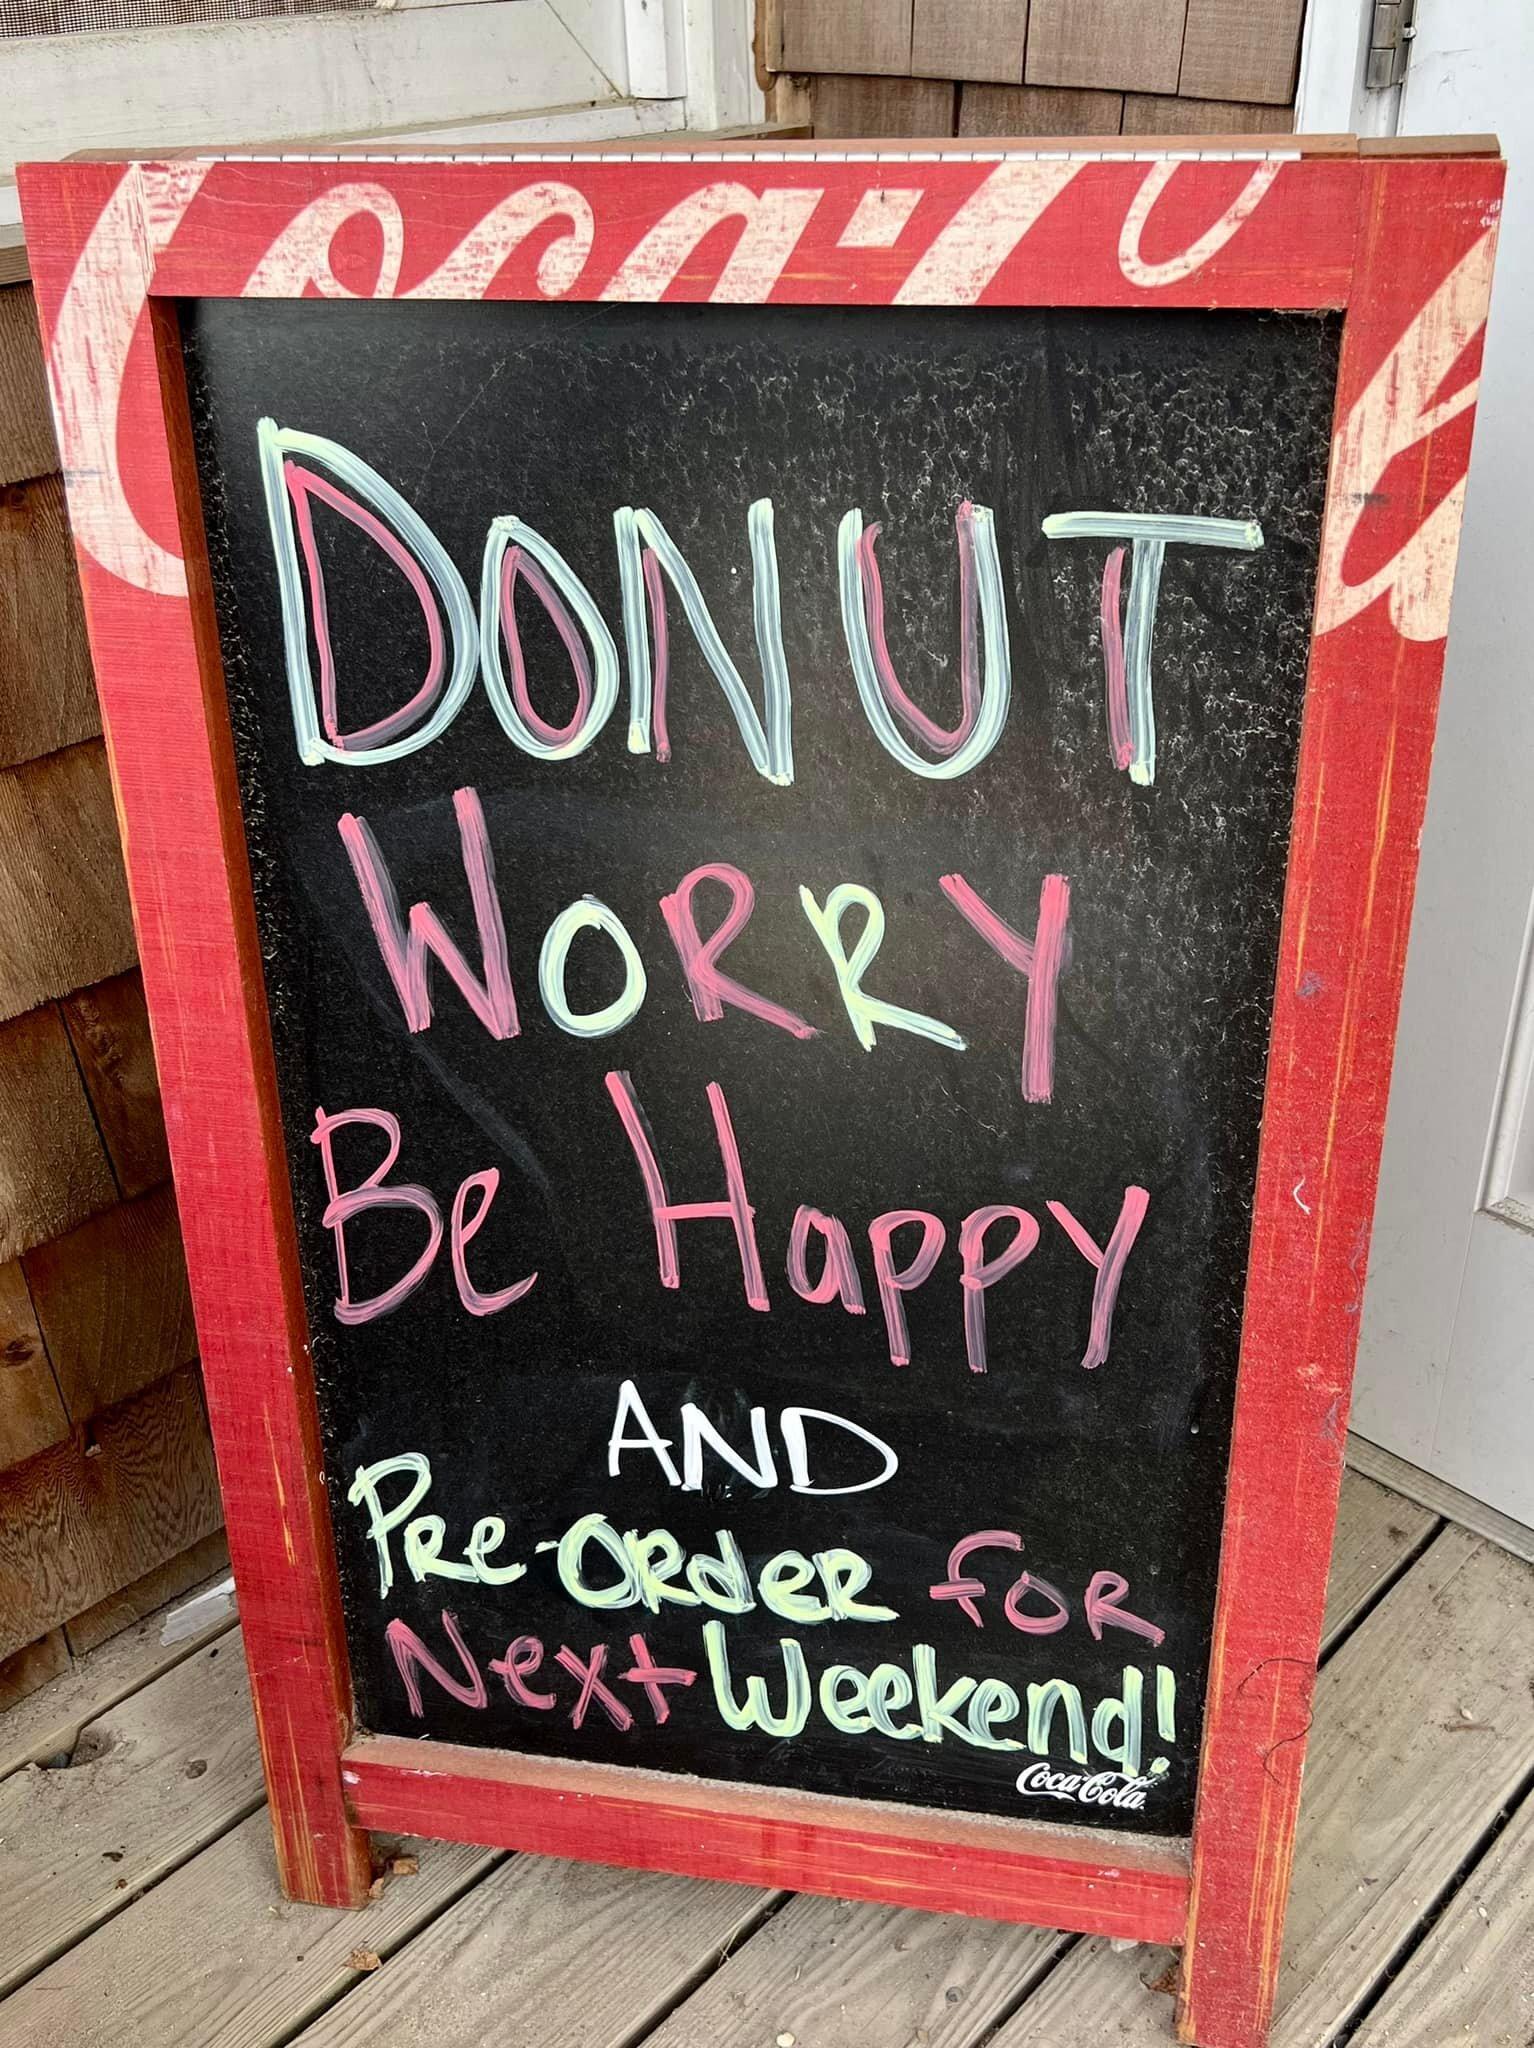 Coca-Co
DONUT
WORRY
Be Happy
AND
Pre-Order for
Next Weekend!
Coca-Cola